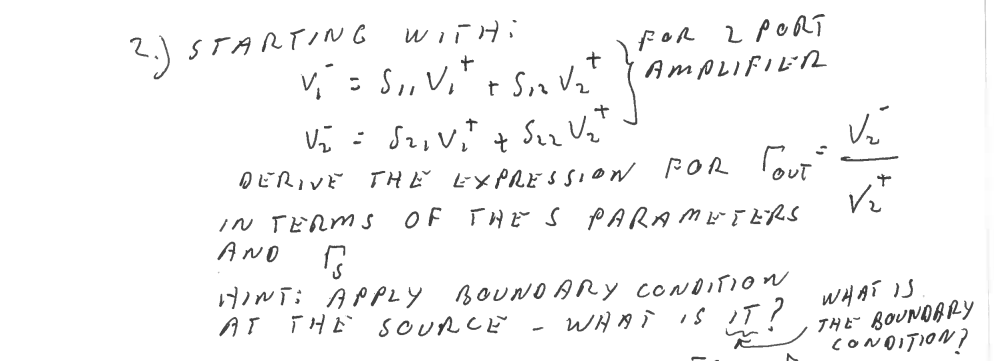 2.) STARTING WITH:
V₁⁻ = S₁₁ V₁⁺ + S₁₂ V₂⁺ } FOR 2 PORT AMPLIFIER
V₂⁻ = S₂₁ V₁⁺ + S₂₂ V₂⁺
DERIVE THE EXPRESSION FOR Γ_OUT = V₂⁻ / V₂⁺
IN TERMS OF THE S PARAMETERS
AND Γ_S
HINT: APPLY BOUNDARY CONDITION
AT THE SOURCE - WHAT IS IT?
WHAT IS
THE BOUNDARY
CONDITION?